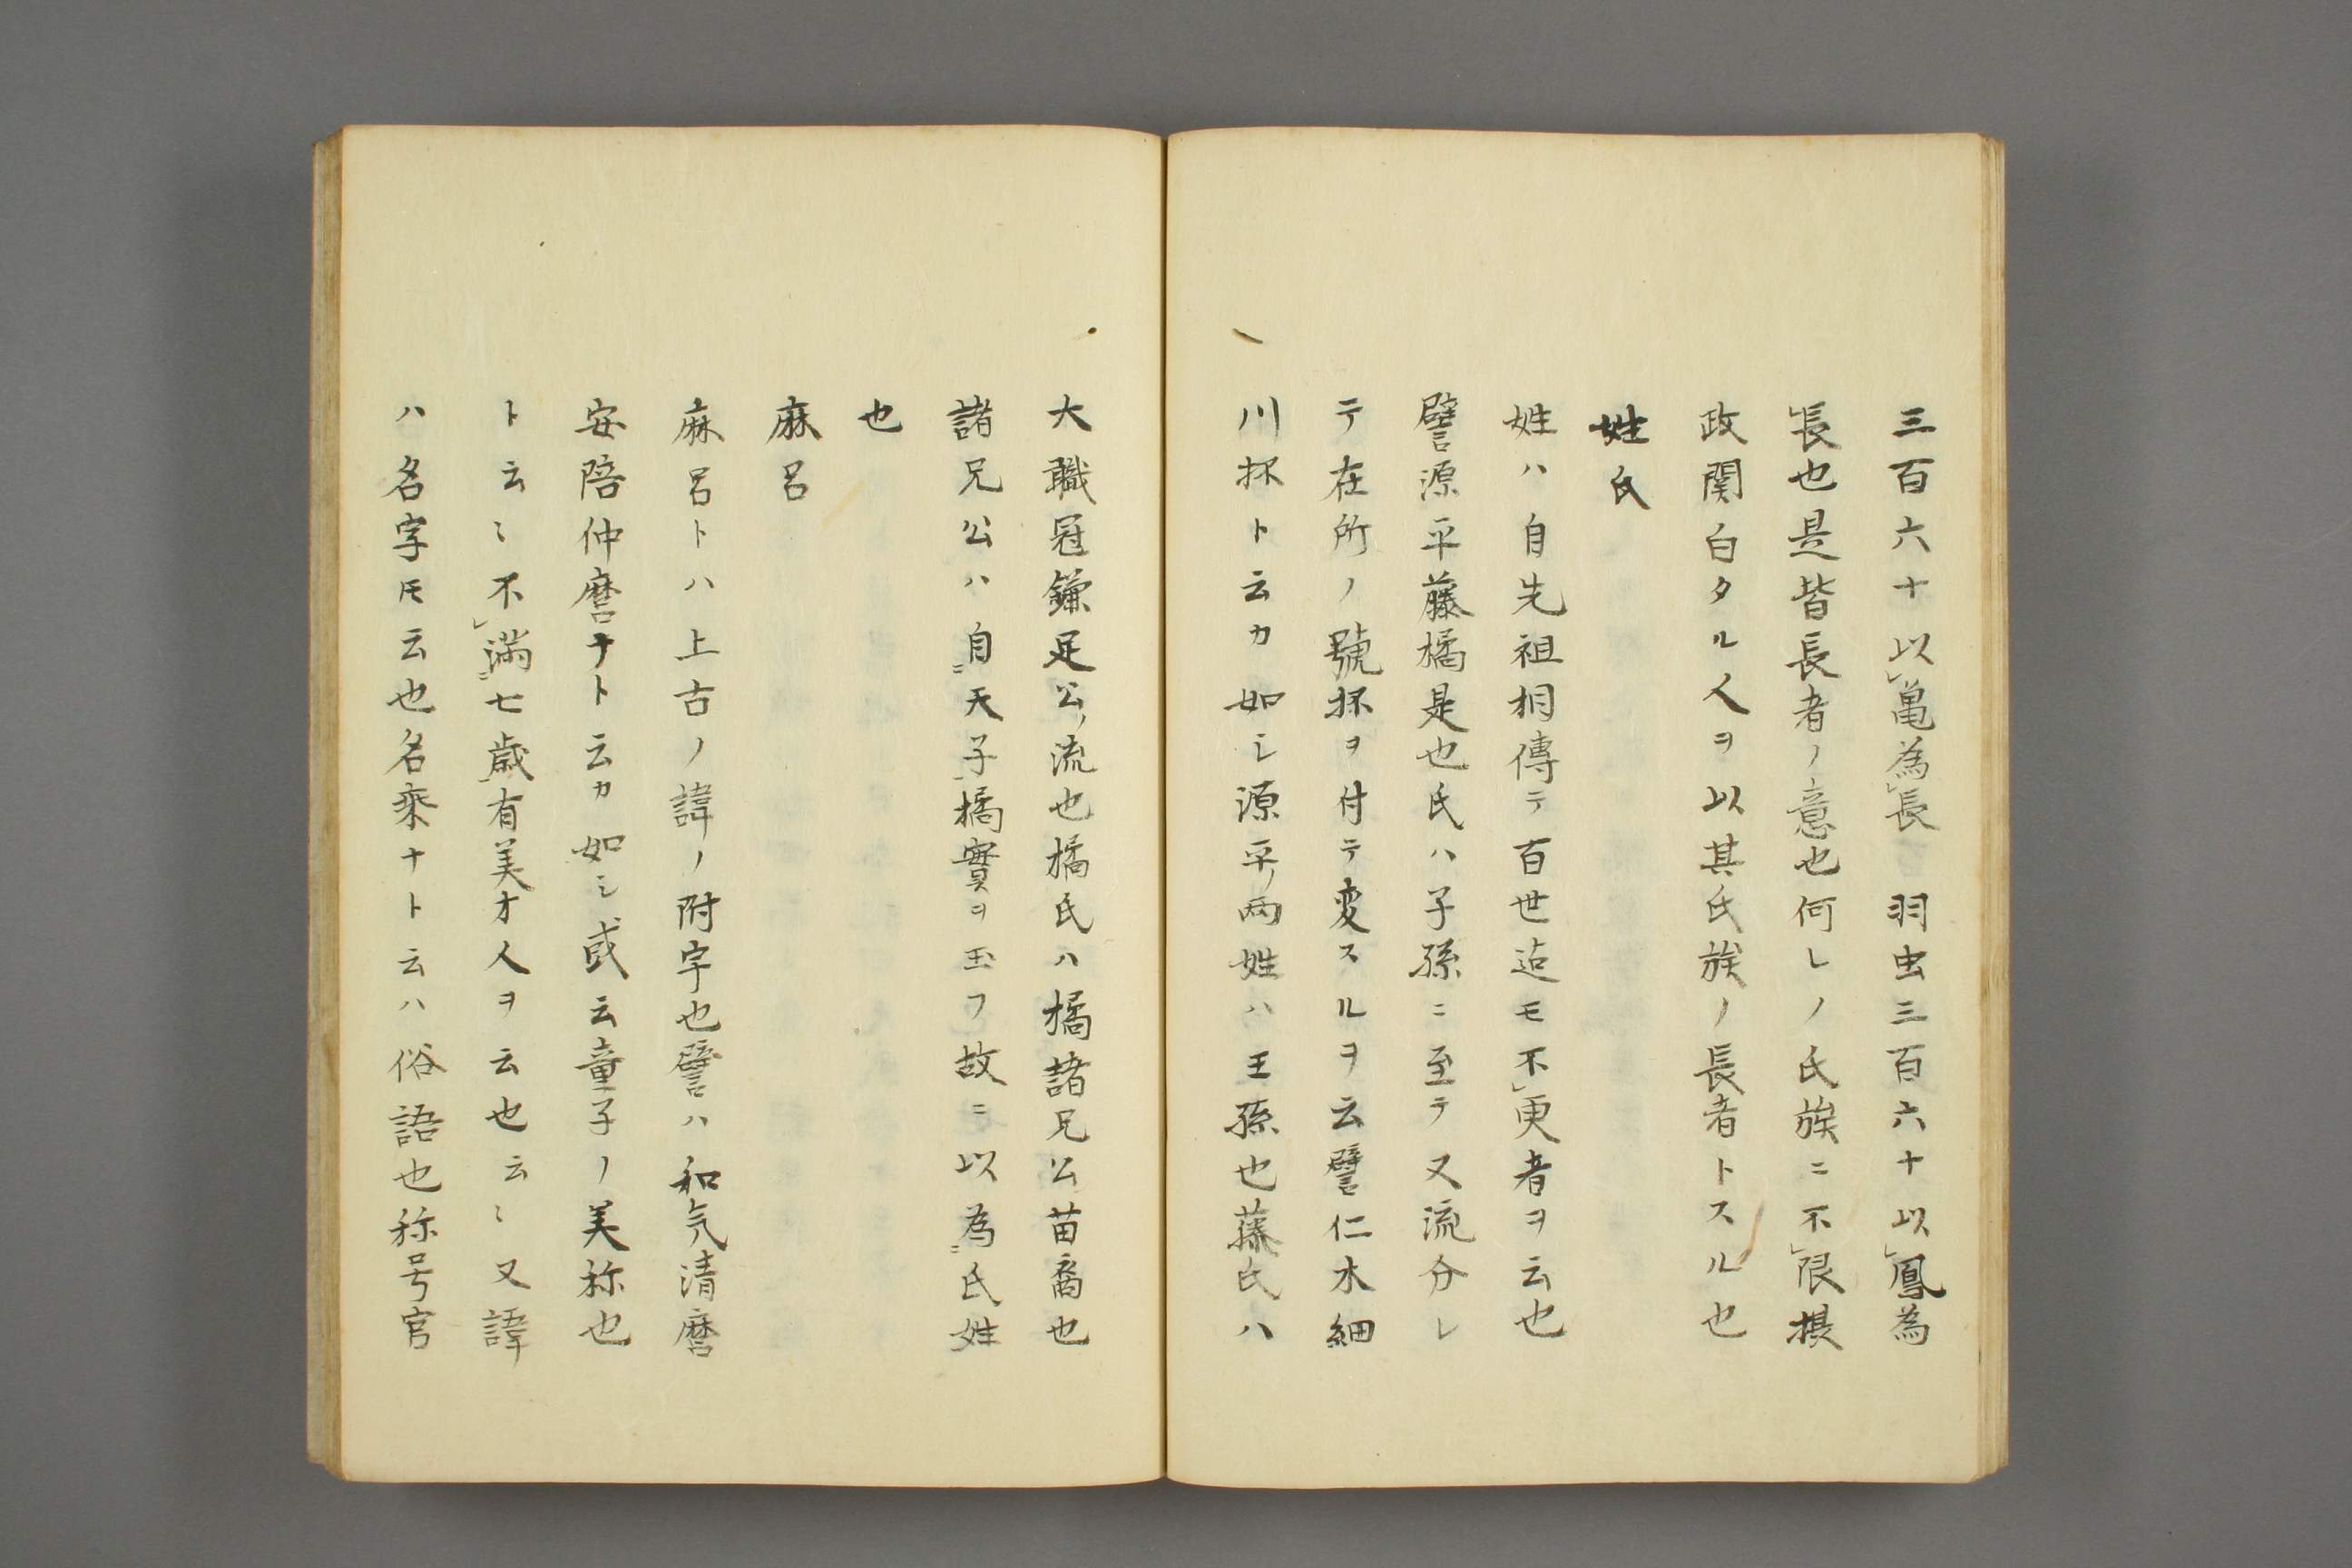 三百六十以㆑亀為㆑長　羽虫三百六十以㆑鳳為
㆑長也是皆長者ノ意也何レノ氏族ニ不㆑限摂
政関白タル人ヲ以其氏族ノ長者トスル也
姓氏
姓ハ自先祖相傳テ百世迠モ不㆑更者ヲ云也
譬源平藤橘是也氏ハ子孫ニ至テ又流分レ
テ在所ノ號抔ヲ付テ変スルヲ云譬仁木細
川抔ト云カ如シ源平ノ両姓ハ王孫也藤氏ハ
大職冠鎌足公ノ流也橘氏ハ橘諸兄公苗裔也
諸兄公ハ自㆓天子㆒橘實ヲ玉フ故ニ以為㆓氏姓
也
麻呂
麻呂トハ上古ノ諱ノ附字也譬ハ和気清麿
安陪仲麿ナト云カ如シ或云童子ノ美称也
ト云〻不㆑満㆓七歳㆒有美才人ヲ云也云〻又諱
ハ名字𪜈云也名乗ナト云ハ俗語也称号官